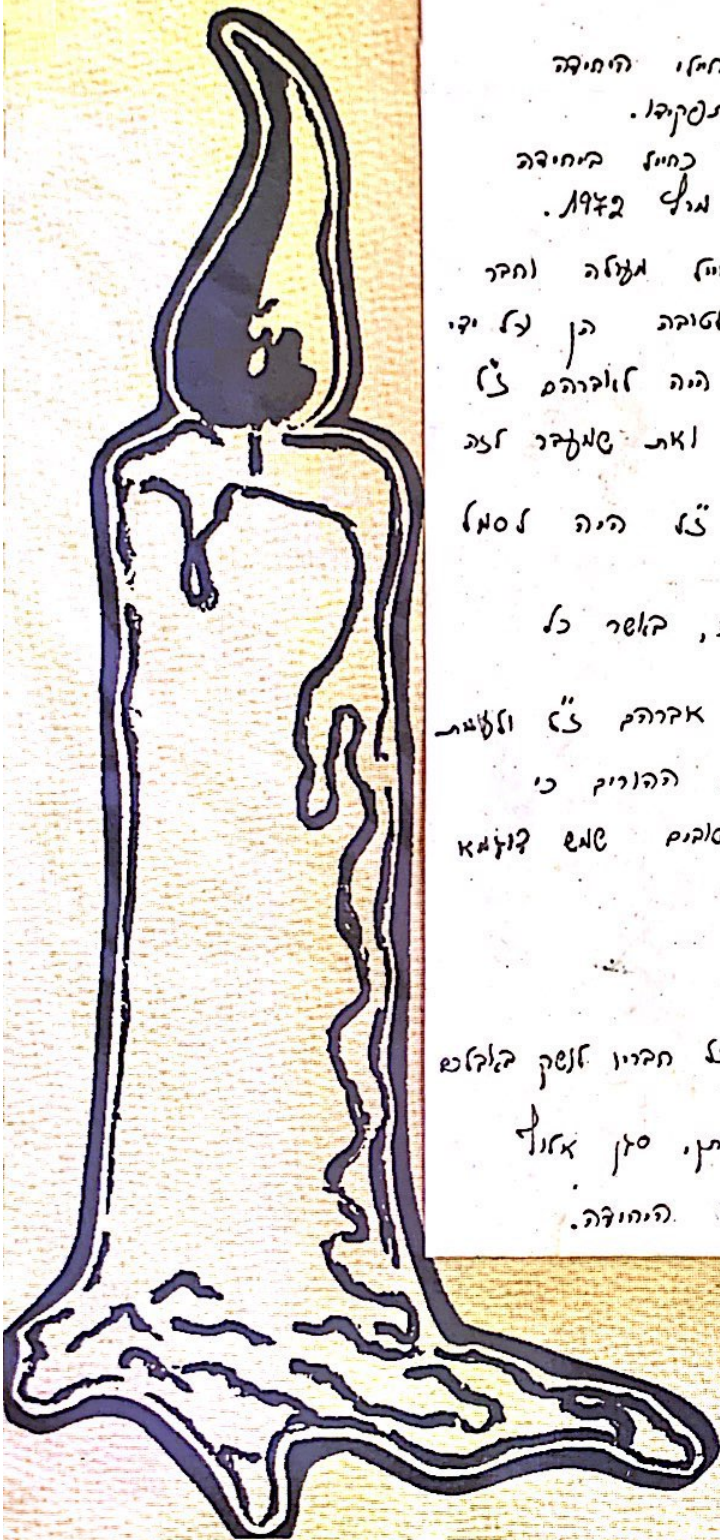 היחידה
תפקידו.
כחייל ביחידה
מרץ 1972.
מעולה וחבר
לטובה הן על ידי
היה לאברהם ז"ל
ואת שמעבר לזה
ז"ל היה לסמל
, באשר כל
אברהם ז"ל ולעומת
ההורים כי
שמש דוגמא
חבריו לנשק באבלכם
סגן אלוף
היחידה.